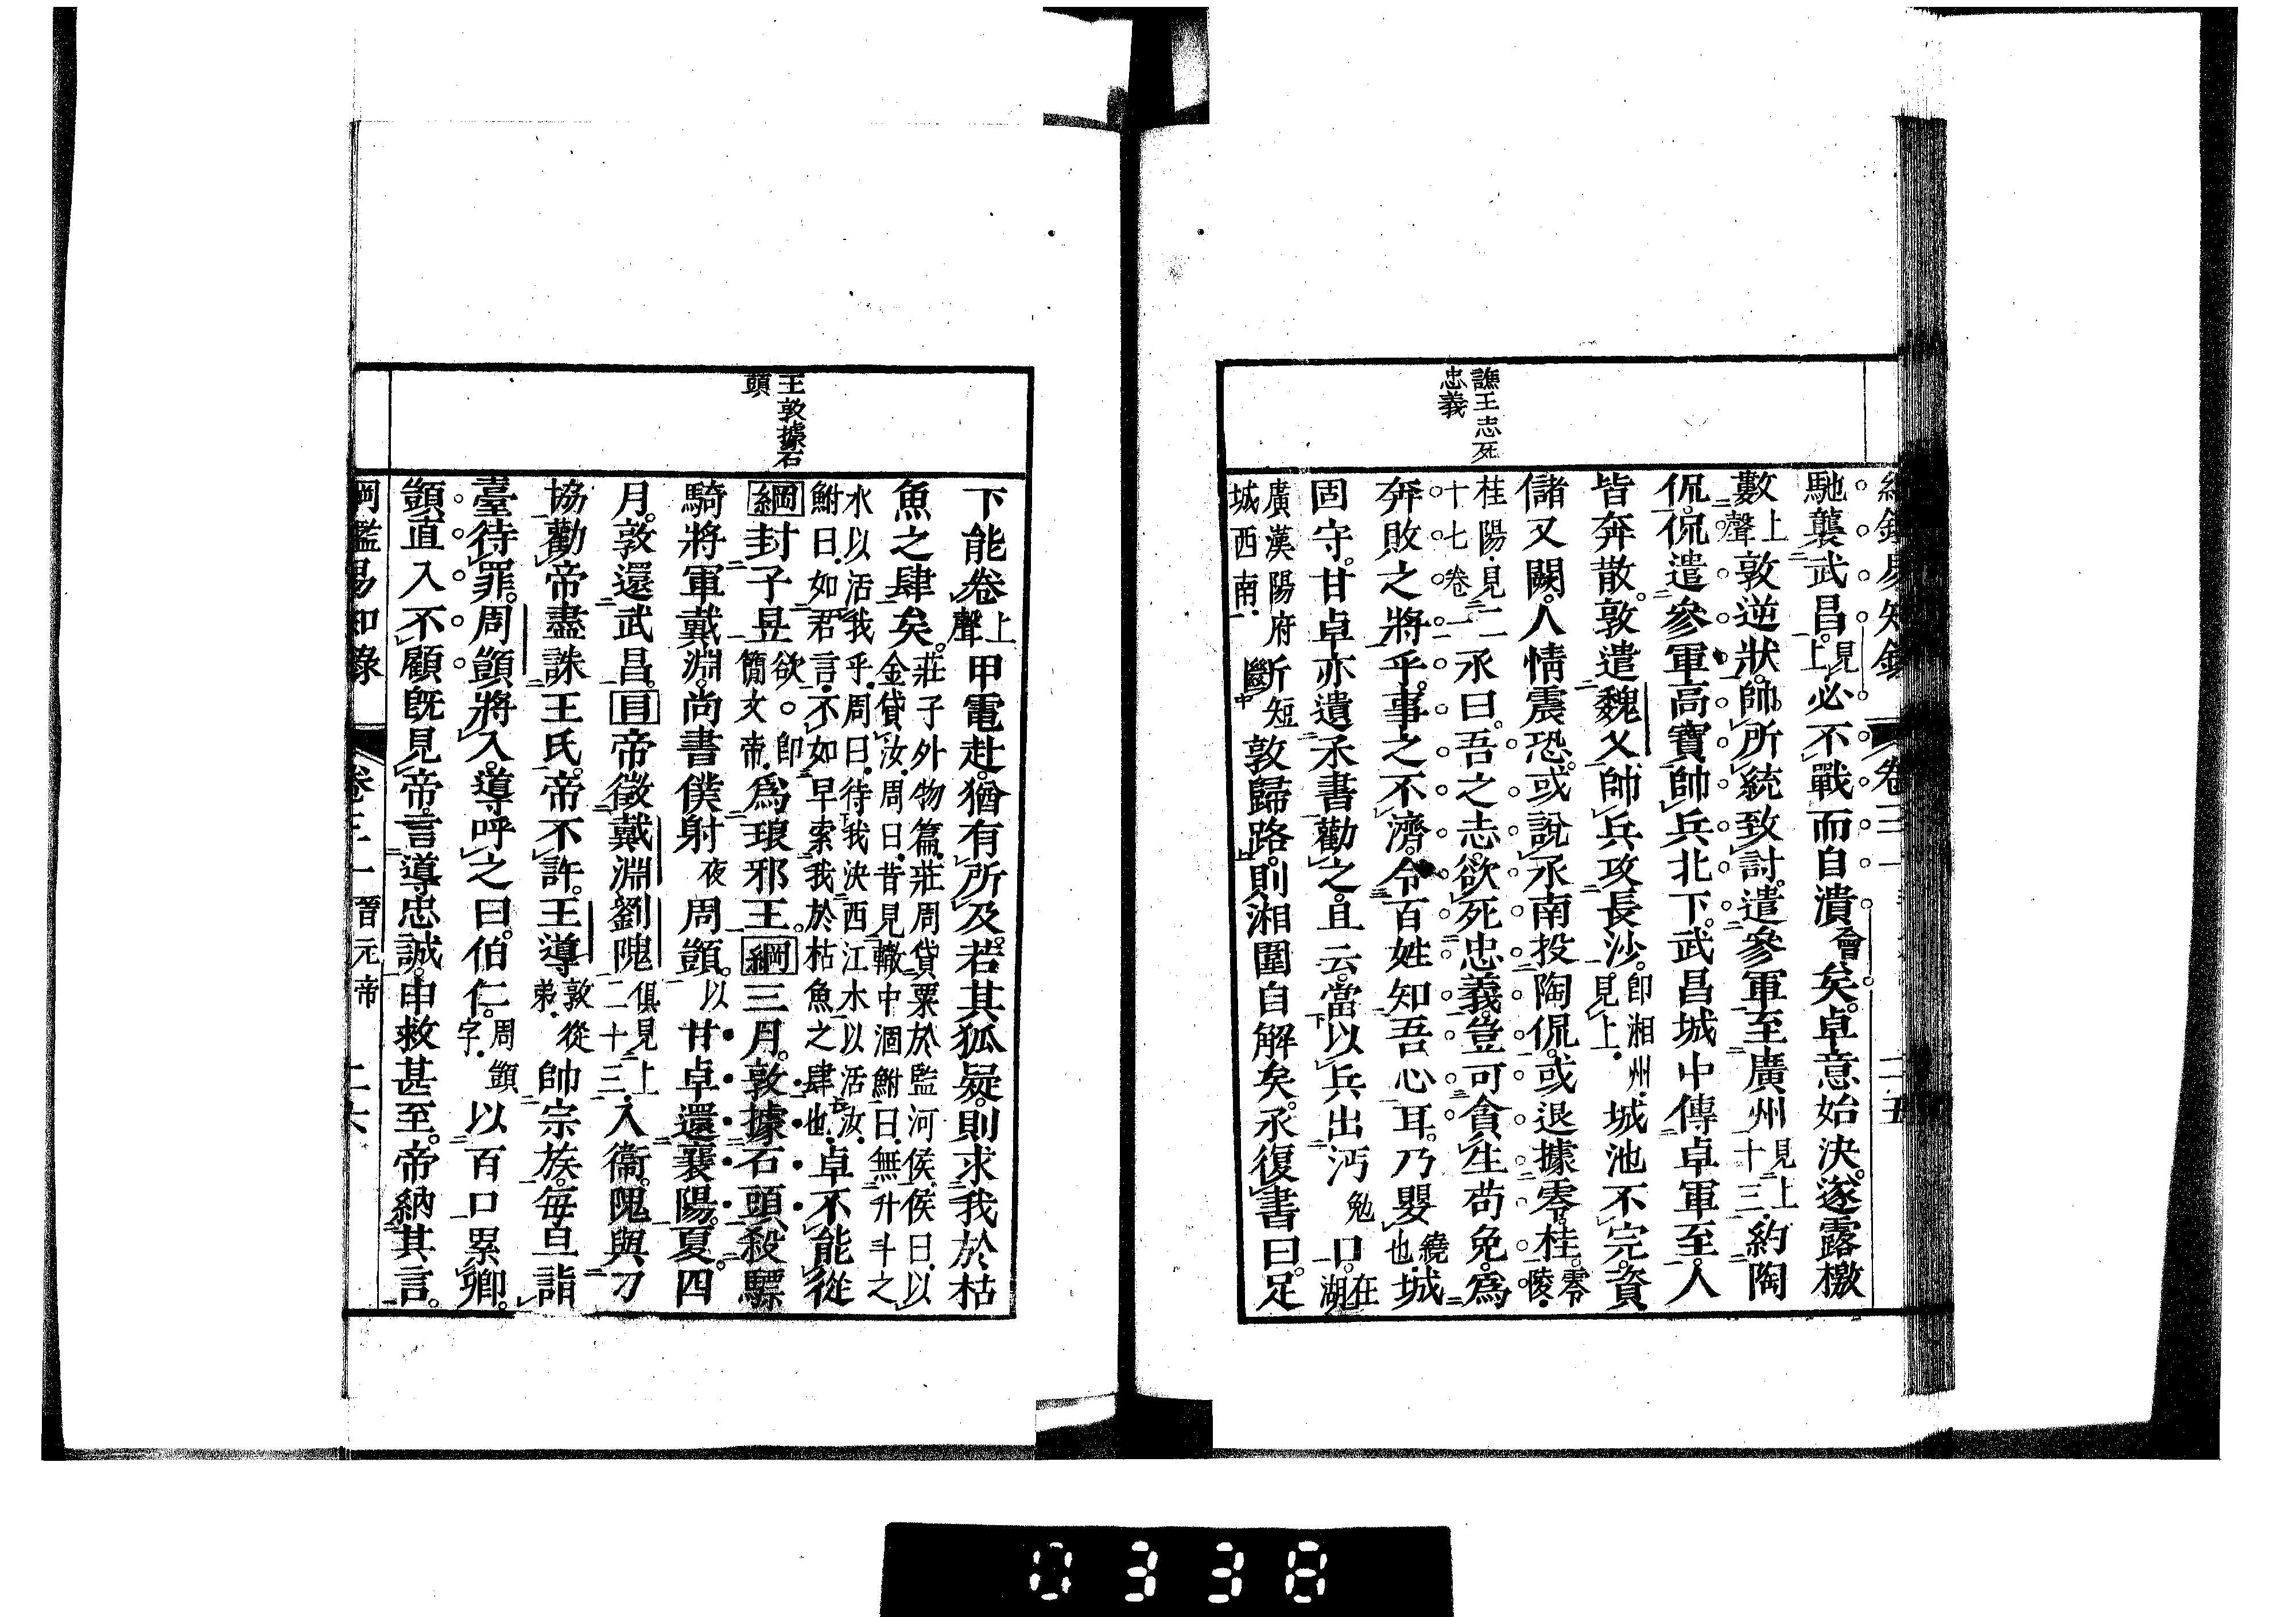 綱鑑易知錄 卷三一 二五
譙王志死
忠義
馳襲武昌。見上。必不戰而自潰會矣。卓意始決。遂露檄
數上聲敦逆狀。帥所統致討。遣參軍至廣州見上十三。約陶
侃。侃遣參軍高寶帥兵北下。武昌城中傳卓軍至。人
皆奔散。敦遣魏乂帥兵攻長沙。即湘州。見上。城池不完。資
儲又闕。人情震恐。或說承南投陶侃。或退據零桂。零陵。
桂陽。見二十七卷一。承曰。吾之志。欲死忠義。豈可貪生苟免。爲
奔敗之將乎。事之不濟。令百姓知吾心耳。乃嬰繞也。城
固守。甘卓亦遺承書勸之。且云。當以兵出沔勉口。在湖
廣漢陽府城西南。斷短敦歸路。則湘圍自解矣。承復書曰。足
王敦據石
頭
下能卷上聲甲電赴。猶有所及。若其狐疑。則求我於枯
魚之肆矣。莊子外物篇。莊周貸粟於監河侯。侯曰。以金貸汝。周曰。昔見轍中涸鮒曰。無升斗之
水以活我乎。周曰。待我決西江水以活汝。鮒曰。如君言。不如早索我於枯魚之肆也。卓不能從
綱封子昱欲。○即簡文帝。爲琅邪王。綱三月。敦據石頭。殺驃
騎將軍戴淵。尚書僕射夜周顗。以甘卓還襄陽。夏。四
月。敦還武昌。目帝徵戴淵劉隗俱見上二十三。入衞。隗與刁
協勸帝盡誅王氏。帝不許。王導敦從弟。帥宗族。每旦詣
臺待罪。周顗將入。導呼之曰。伯仁。周顗字。以百口累卿。
顗直入不顧。旣見帝。言導忠誠。申救甚至。帝納其言。
綱鑑易知錄 卷三一 晉元帝 二六
0338